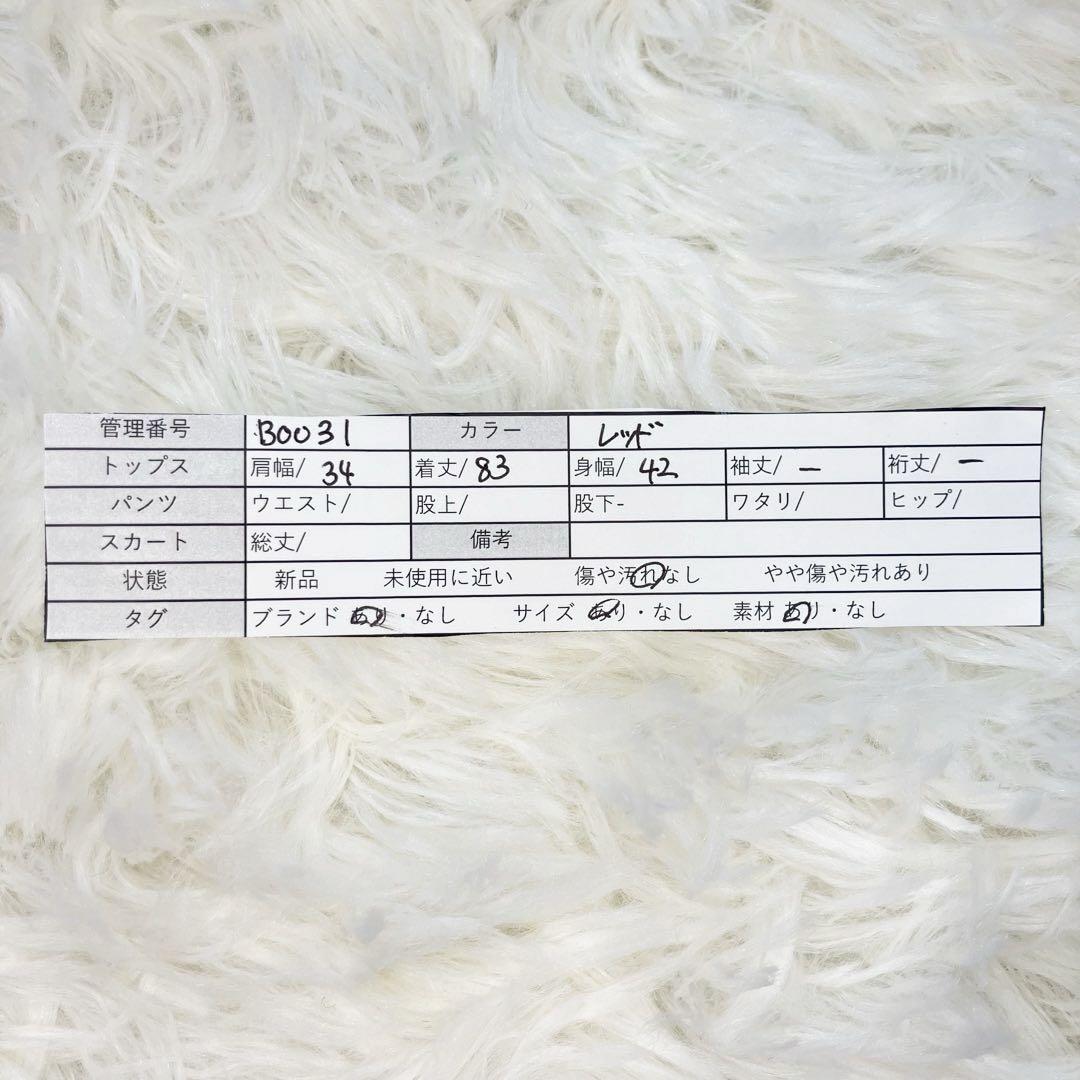 管理番号 B0031 カラー レッド
トップス 肩幅/ 34 着丈/ 83 身幅/ 42 袖丈/ ー 裄丈/ ー
パンツ ウエスト/ 股上/ 股下- ワタリ/ ヒップ/
スカート 総丈/ 備考
状態 新品 未使用に近い 傷や汚れなし やや傷や汚れあり
タグ ブランド あり・なし サイズ あり・なし 素材 あり・なし